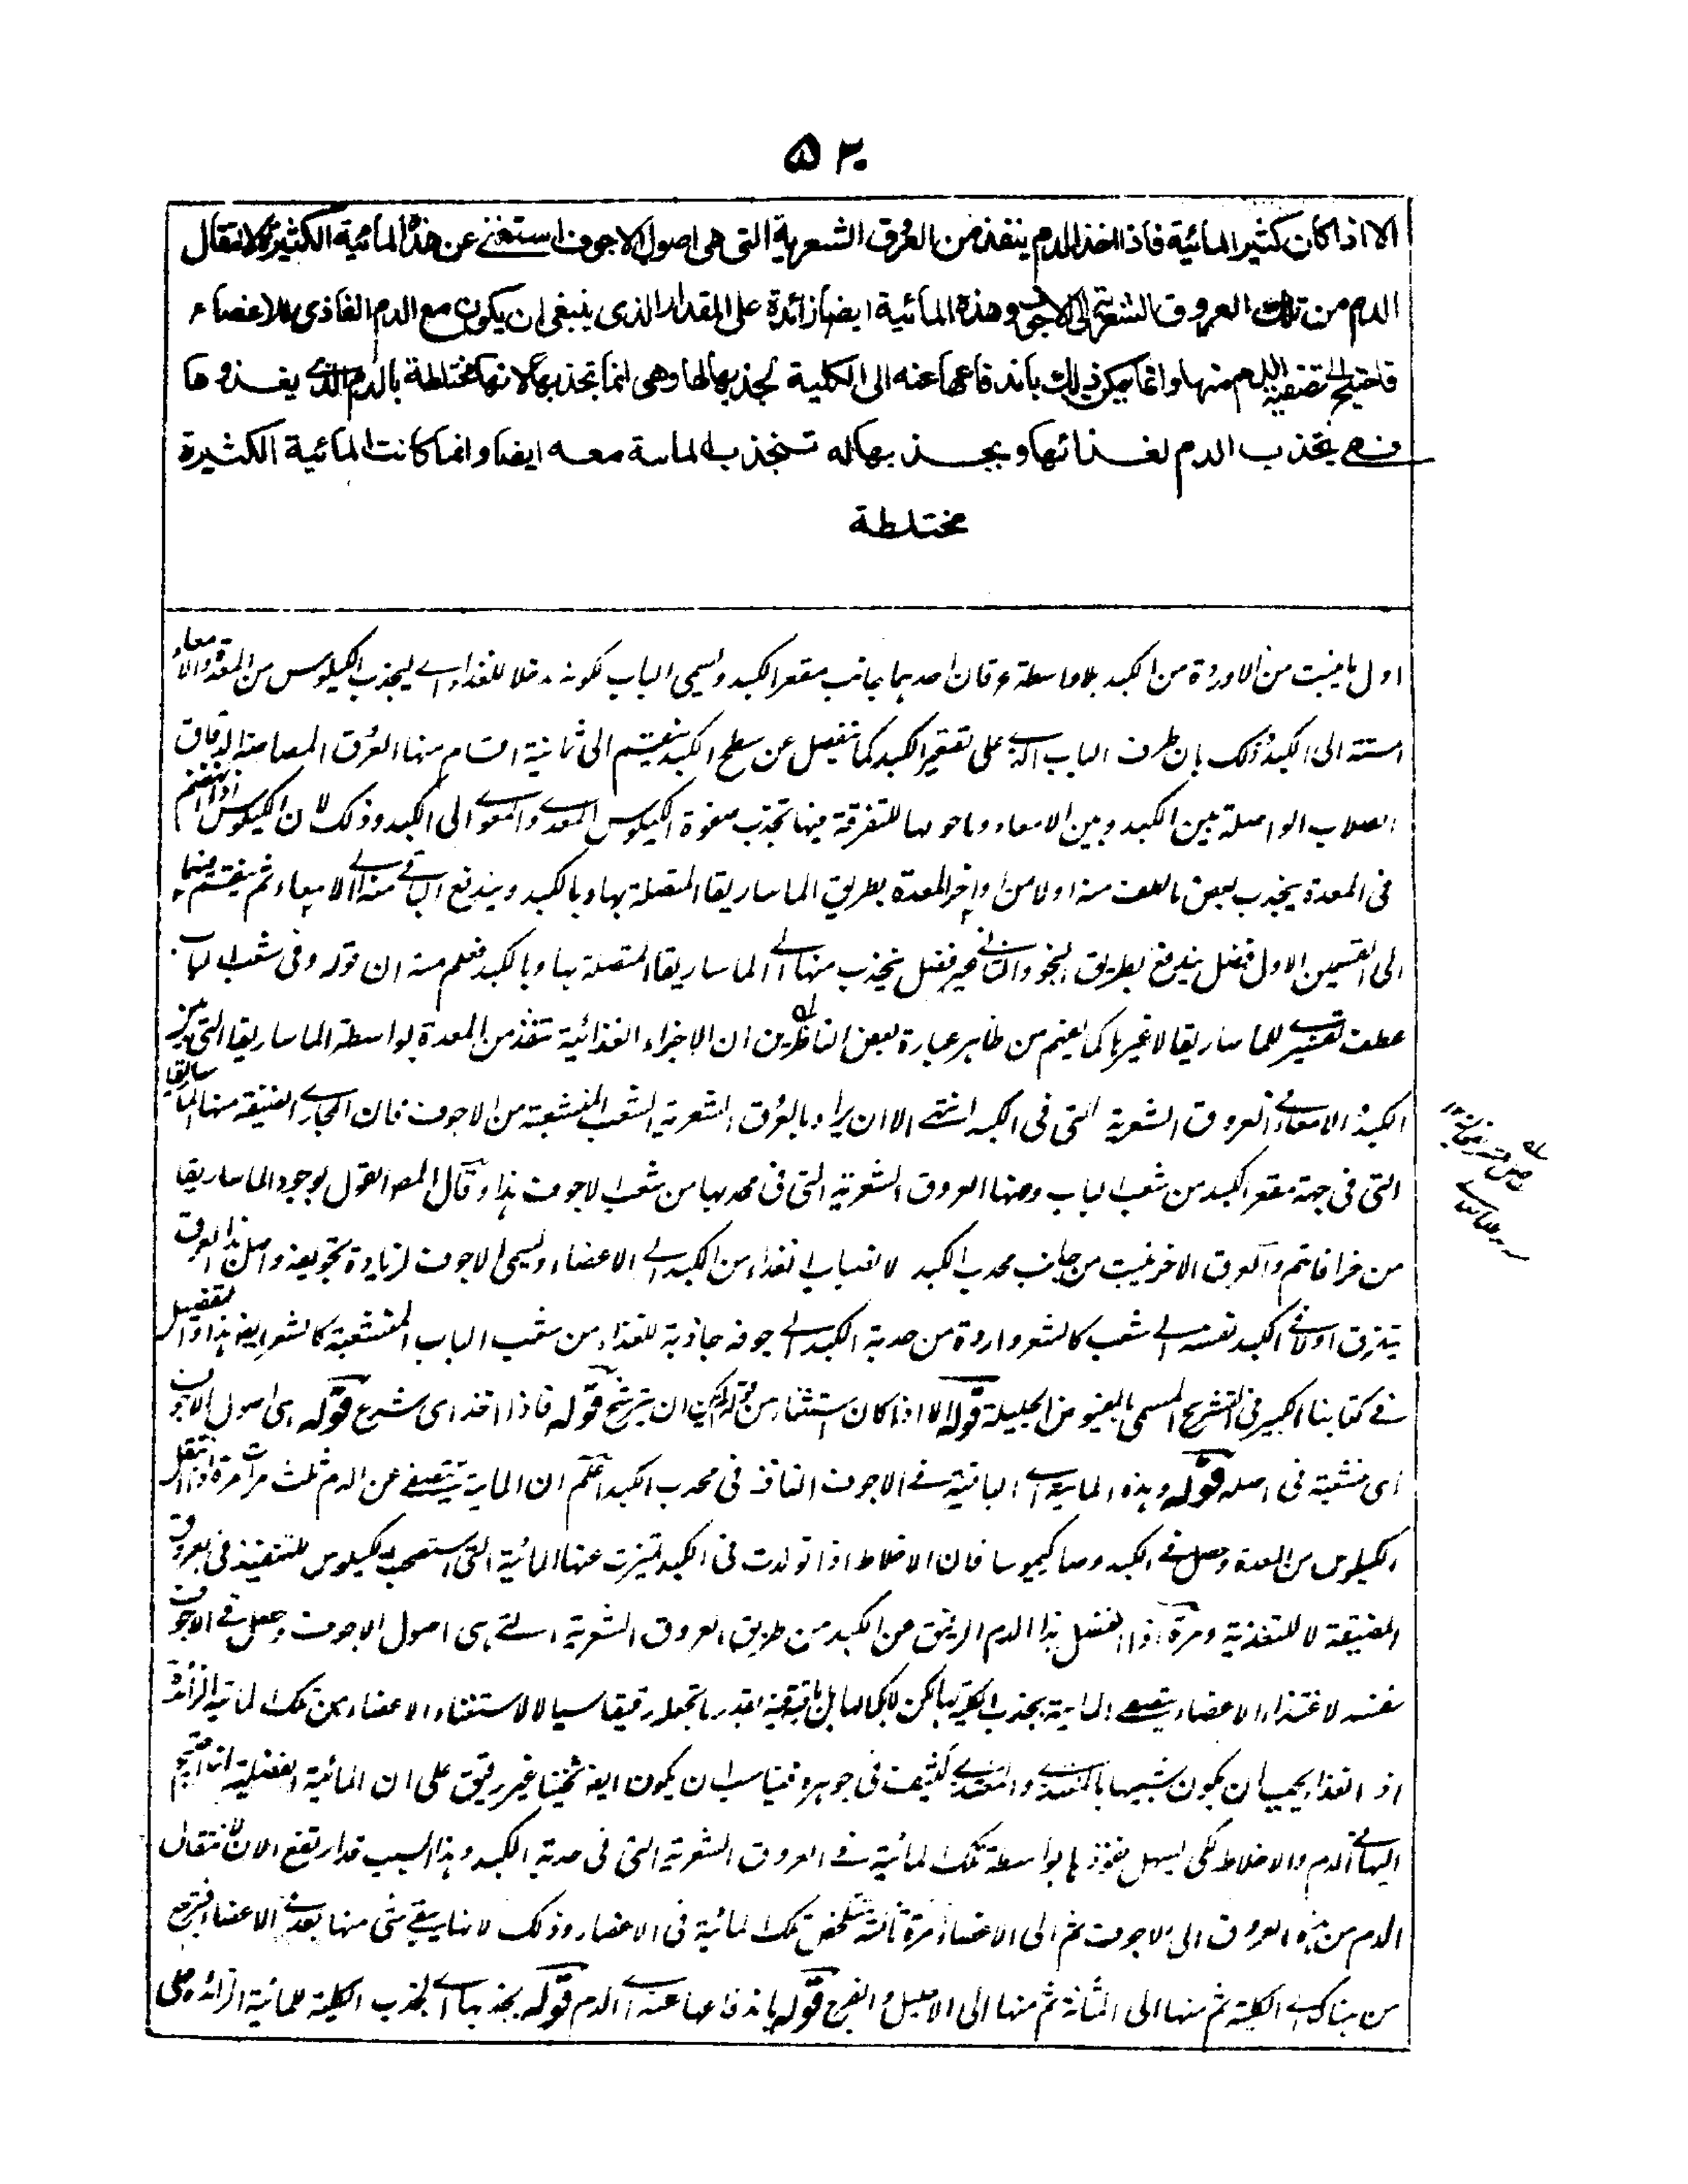 ۵۲
الا اذا كان كثير المائية فاذا اخذ الدم ينفذ من العرق الشعرية التى هى اصول الاجوف استغنى عن هذه المائية الكثيرة لانتقال
الدم من تلك العروق الشعرية الى الاجوف وهذه المائية ايضا زائدة على المقدار الذى ينبغى ان يكون مع الدم الغاذى للاعضاء
فاحتيج الى تصفية الدم منها وانما يمكن ذلك باندفاعها عنه الى الكلية لجذبها لها وهى انما تجذبها لانها مختلطة بالدم الذى يغذوها
فهى تجذب الدم لغذائها وبجذبها له تنجذب المائية معه ايضا وانما كانت المائية الكثيرة
مختلطة
اول ما ينبت من الاوردة من الكبد بلا واسطة عرقان احدهما بجانب مقعر الكبد ويسمى الباب لكونه مدخلا للغذاء اے ليجذب الكيلوس من المعدة والامعاء
الى الكبد وذلك بان طرف الباب الذى على تقعير الكبد كما ينفصل عن سطح الكبد ينقسم الى ثمانية اقسام منها العرق المصاصة الدقاق
الصلاب الواصلة بين الكبد وبين الامعاء وما حولها للتفرقة فيها تجذب صفوة الكيلوس المعدے والمعوے الى الكبد وذلك لان الكيلوس اذا انهضم
فى المعدة يجذب بعض ما لطف منه اولا من اواخر المعدة بطريق الماساريقا المتصلة بها وبالكبد ويندفع الباقے منه الى الامعاء ثم ينقسم فيها
الى القسمين الاول فضل يندفع بطريق النجو والثانے غير فضل ينجذب منها الے الماساريقا المتصلة بها وبالكبد فعلم منه ان قوله وفى شعب الباب
عطف تفسيرے للماساريقا لا غيرها كما يفهم من ظاهر عبارة بعض الناظرين ان الاجزاء الغذائية تنفذ من المعدة بواسطة الماساريقا التى بين
الكبد والامعاء فى العروق الشعرية التى فى الكبد انتهى الا ان يراد بالعرق الشعرية الشعب المنشعبة من الاجوف فان المجارے الضيقة منها الماساريقا
التى فى جهة مقعر الكبد من شعب الباب ومنها العروق الشعرية التى فى محدبها من شعب الاجوف هذا وقال المصـ القول بوجود الماساريقا
من خرافاتهم والعرق الاخر ينبت من جانب محدب الكبد لانصباب الغذاء من الكبد الى الاعضاء ويسمى الاجوف لزيادة تجويفه واصل هذا العرق
يتفرق اولا فى الكبد نفسه الے شعب كالشعر واردة من حدبة الكبد الے جوفه جاذبة للغذاء من شعب الباب المنشعبة كالشعر ايضا هذا والتفصيل
فى كتابنا الكبير فى التشريح المسمى بالفيوض الجليلة قوله الا اذا كان استثناء من قوله لم يمكن ان يترشح قوله فاذا اخذ اى شرع قوله هى اصول الاجوف
اى منشعبة فى اصله قوله وهذه المائية اے الباقية فى الاجوف النافذ فى محدب الكبد اعلم ان المائية تتصفى عن الدم ثلث مرات مرة اذا انتقل
الكيلوس من المعدة وحصل فى الكبد وصار كيموسا فان الاخلاط اذا تولدت فى الكبد تميزت عنها المائية التى استصحبت الكيلوس للتنفيذ فى العروق
الضيقة لا للتغذية ومرة اذا انفصل هذا الدم الرقيق من الكبد من طريق العروق الشعرية التى هى اصول الاجوف وحصل فى الاجوف
نفسه لاغتذاء الاعضاء يتصفى المائية بجذب الكلية لها لكن لا بكمالها بل تبقى فيه بقدر ما تجعله رقيقا سيالا لاستغناء الاعضاء عن تلك المائية الزائدة
اذ الغذاء يجب ان يكون شبيها بالمغتذے والمغتذے كثيف فى جوهره فيناسب ان يكون ايضا ثخينا غير رقيق على ان المائية الفضلية انما احتيج
اليها فى الدم والاخلاط لكى يسهل نفوذها بواسطة تلك المائية فى العروق الشعرية التى فى حدبة الكبد وهذا السبب قد ارتفع الان لانتقال
الدم من هذه العروق الى الاجوف ثم الى الاعضاء ومرة ثالثة تتمخض تلك المائية فى الاعضاء وذلك لانها يبقى شئ منها بعد فى الاعضاء فترجع
من هناك الے الكلية ثم منها الى المثانة ثم منها الى الاحليل والفرج قوله باندفاعها عنه اے الدم قوله بجذبها اے لجذب الكلية للمائية الزائدة على